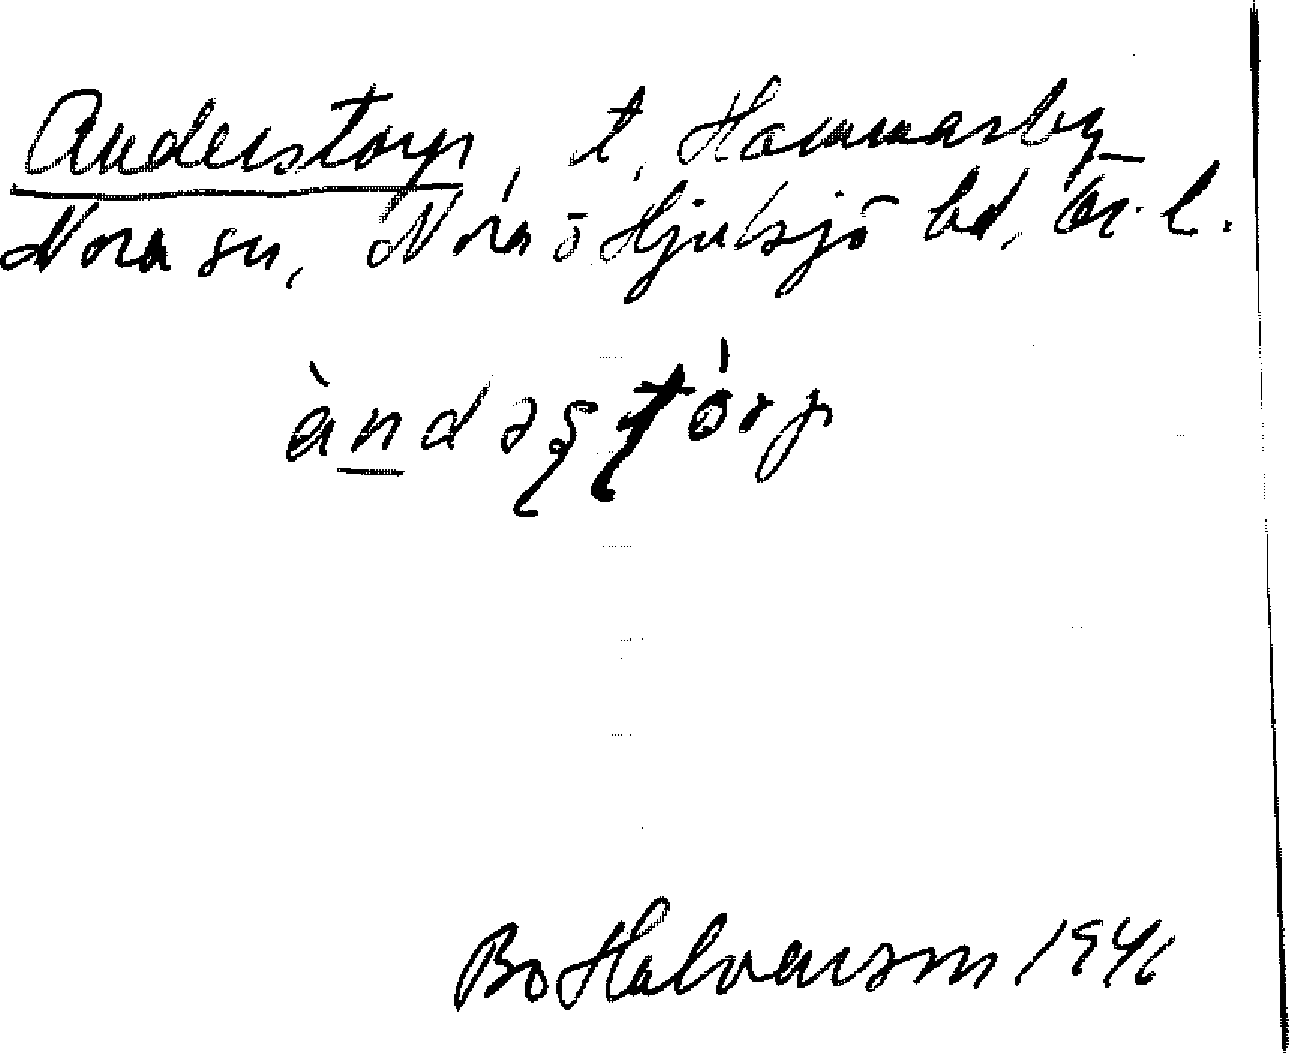 Anderstorp, t, Hammarby
Nora sn, Nora ö Hjulsjö bd, Ör. l.
àndəștórp
Bo Halvarson 1941